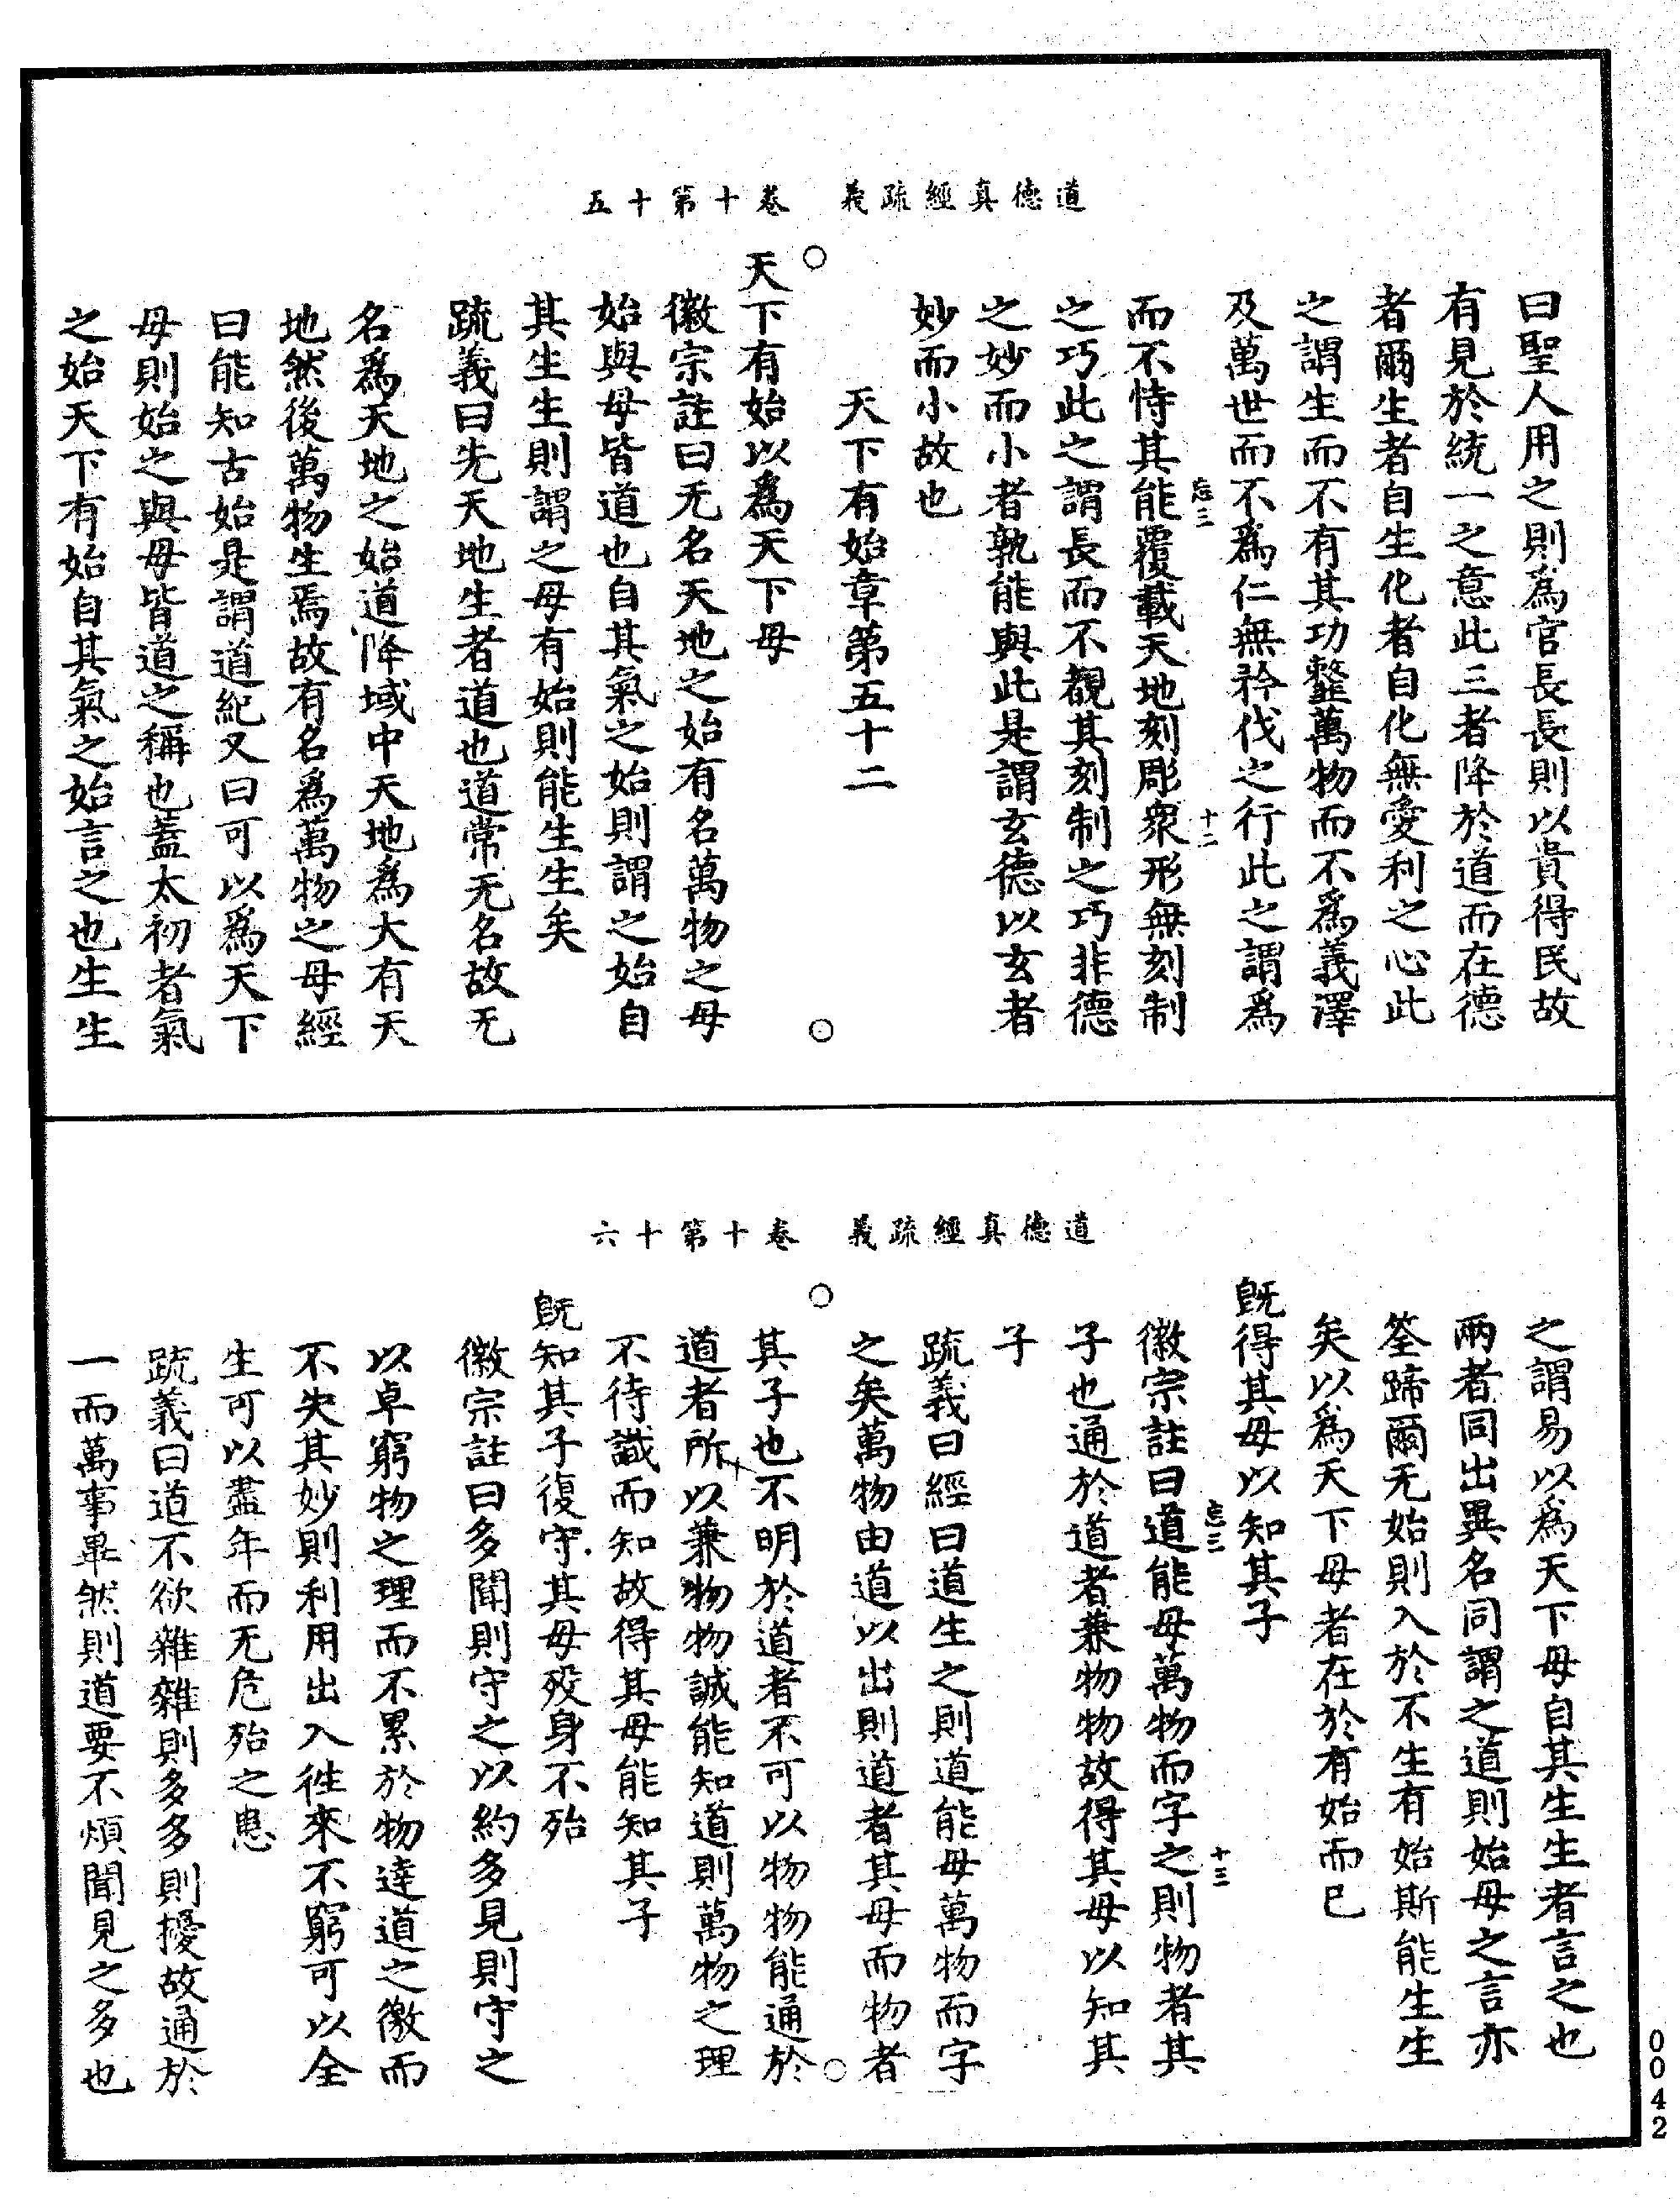 道德真經疏義　卷十第十五
曰聖人用之則為官長長則以貴得民故
有見於統一之意此三者降於道而在德
者爾生者自生化者自化無愛利之心此
之謂生而不有其功𩐋萬物而不爲義澤
及萬世而不爲仁無矜伐之行此之謂爲
忘三　十二
而不恃其能覆載天地刻彫衆形無刻制
之巧此之謂長而不覩其刻制之巧非德
之妙而小者孰能與此是謂玄德以玄者
妙而小故也
天下有始章第五十二
天下有始以爲天下母
徽宗註曰无名天地之始有名萬物之母
始與母皆道也自其氣之始則謂之始自
其生生則謂之母有始則能生生矣
疏義曰先天地生者道也道常无名故无
名爲天地之始道降域中天地爲大有天
地然後萬物生焉故有名爲萬物之母經
曰能知古始是謂道紀又曰可以爲天下
母則始之與母皆道之稱也蓋太初者氣
之始天下有始自其氣之始言之也生生
道德真經疏義　卷十第十六
之謂易以爲天下母自其生生者言之也
兩者同出異名同謂之道則始母之言亦
筌蹄爾无始則入於不生有始斯能生生
矣以爲天下母者在於有始而已
既得其母以知其子
忘三　十三
徽宗註曰道能母萬物而字之則物者其
子也通於道者兼物物故得其母以知其
子
疏義曰經曰道生之則道能母萬物而字
之矣萬物由道以出則道者其母而物者
其子也不明於道者不可以物物能通於
道者所以兼物物誠能知道則萬物之理
不待識而知故得其母能知其子
既知其子復守其母歿身不殆
徽宗註曰多聞則守之以約多見則守之
以卓窮物之理而不累於物達道之徼而
不失其妙則利用出入徃來不窮可以全
生可以盡年而无危殆之患
疏義曰道不欲雜雜則多多則擾故通於
一而萬事畢然則道要不煩聞見之多也
0042